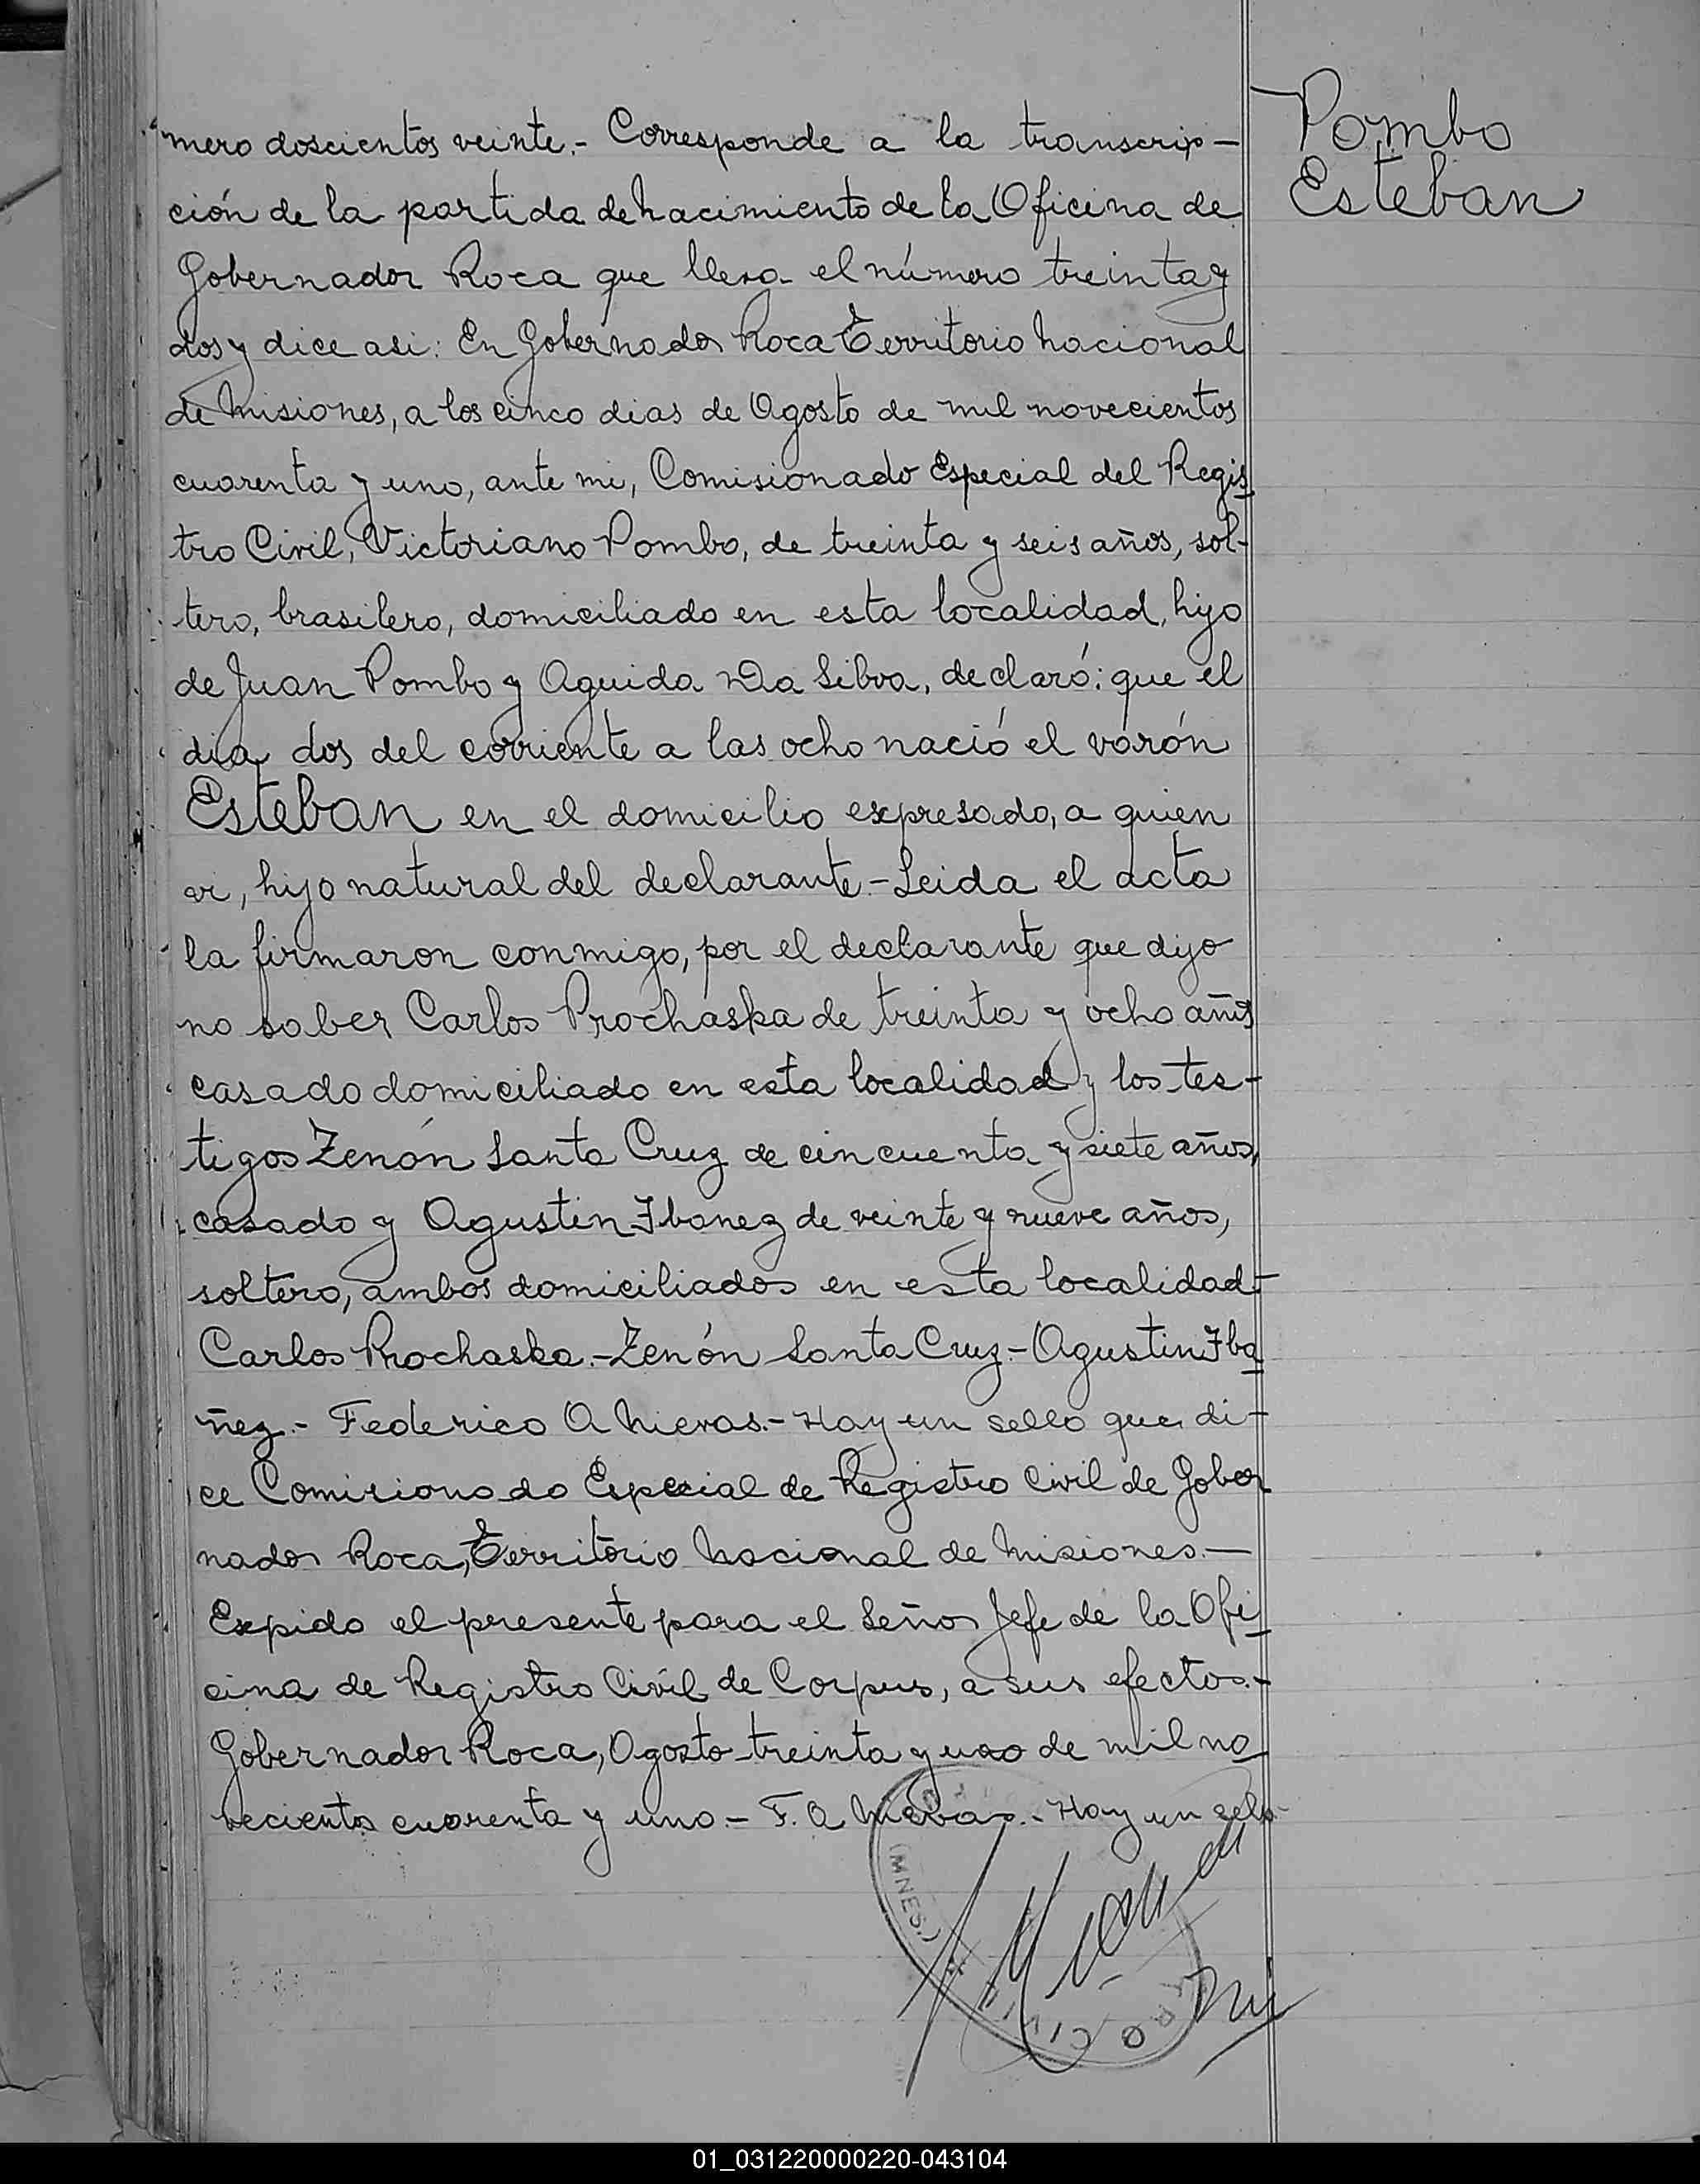 mero doscientos veinte.- Corresponde a la transcrip-
ción de la partida de nacimiento de la Oficina de
Gobernador Roca que lleva el número treinta y
dos y dice asi: En Gobernador Roca Territorio Nacional
de Misiones, a los cinco dias de Agosto de mil novecientos
cuarenta y uno, ante mi, Comisionado Especial del Regis
tro Civil, Victoriano Pombo, de treinta y seis años, sol-
tero, brasilero, domiciliado en esta localidad, hijo
de Juan Pombo y Aguida Da Silva, declaró: que el
dia dos del corriente a las ocho nació el varón
Esteban en el domicilio expresado, a quien
vi, hijo natural del declarante.- Leida el acta
la firmaron conmigo, por el declarante que dijo
no saber Carlos Prochaska de treinta y ocho años
casado domiciliado en esta localidad y los tes-
tigos Zenón Santa Cruz de cincuenta y siete años,
casado y Agustin Ibanez de veinte y nueve años,
soltero, ambos domiciliados en esta localidad-
Carlos Prochaska.- Zenón Santa Cruz - Agustin Iba
ñez.- Federico A Nievas.- Hay un sello que di-
ce Comisionado Especial de Registro Civil de Gober
nador Roca, Territorio Nacional de Misiones.-
Expido el presente para el Señor Jefe de la Ofi
cina de Registro Civil de Corpus, a sus efectos.-
Gobernador Roca, Agosto treinta y uno de mil no
vecientos cuarenta y uno.- F. A Nievas.- Hay un sello.-
Pombo
Esteban
(MNES.)
CIVIL
01_031220000220-043104